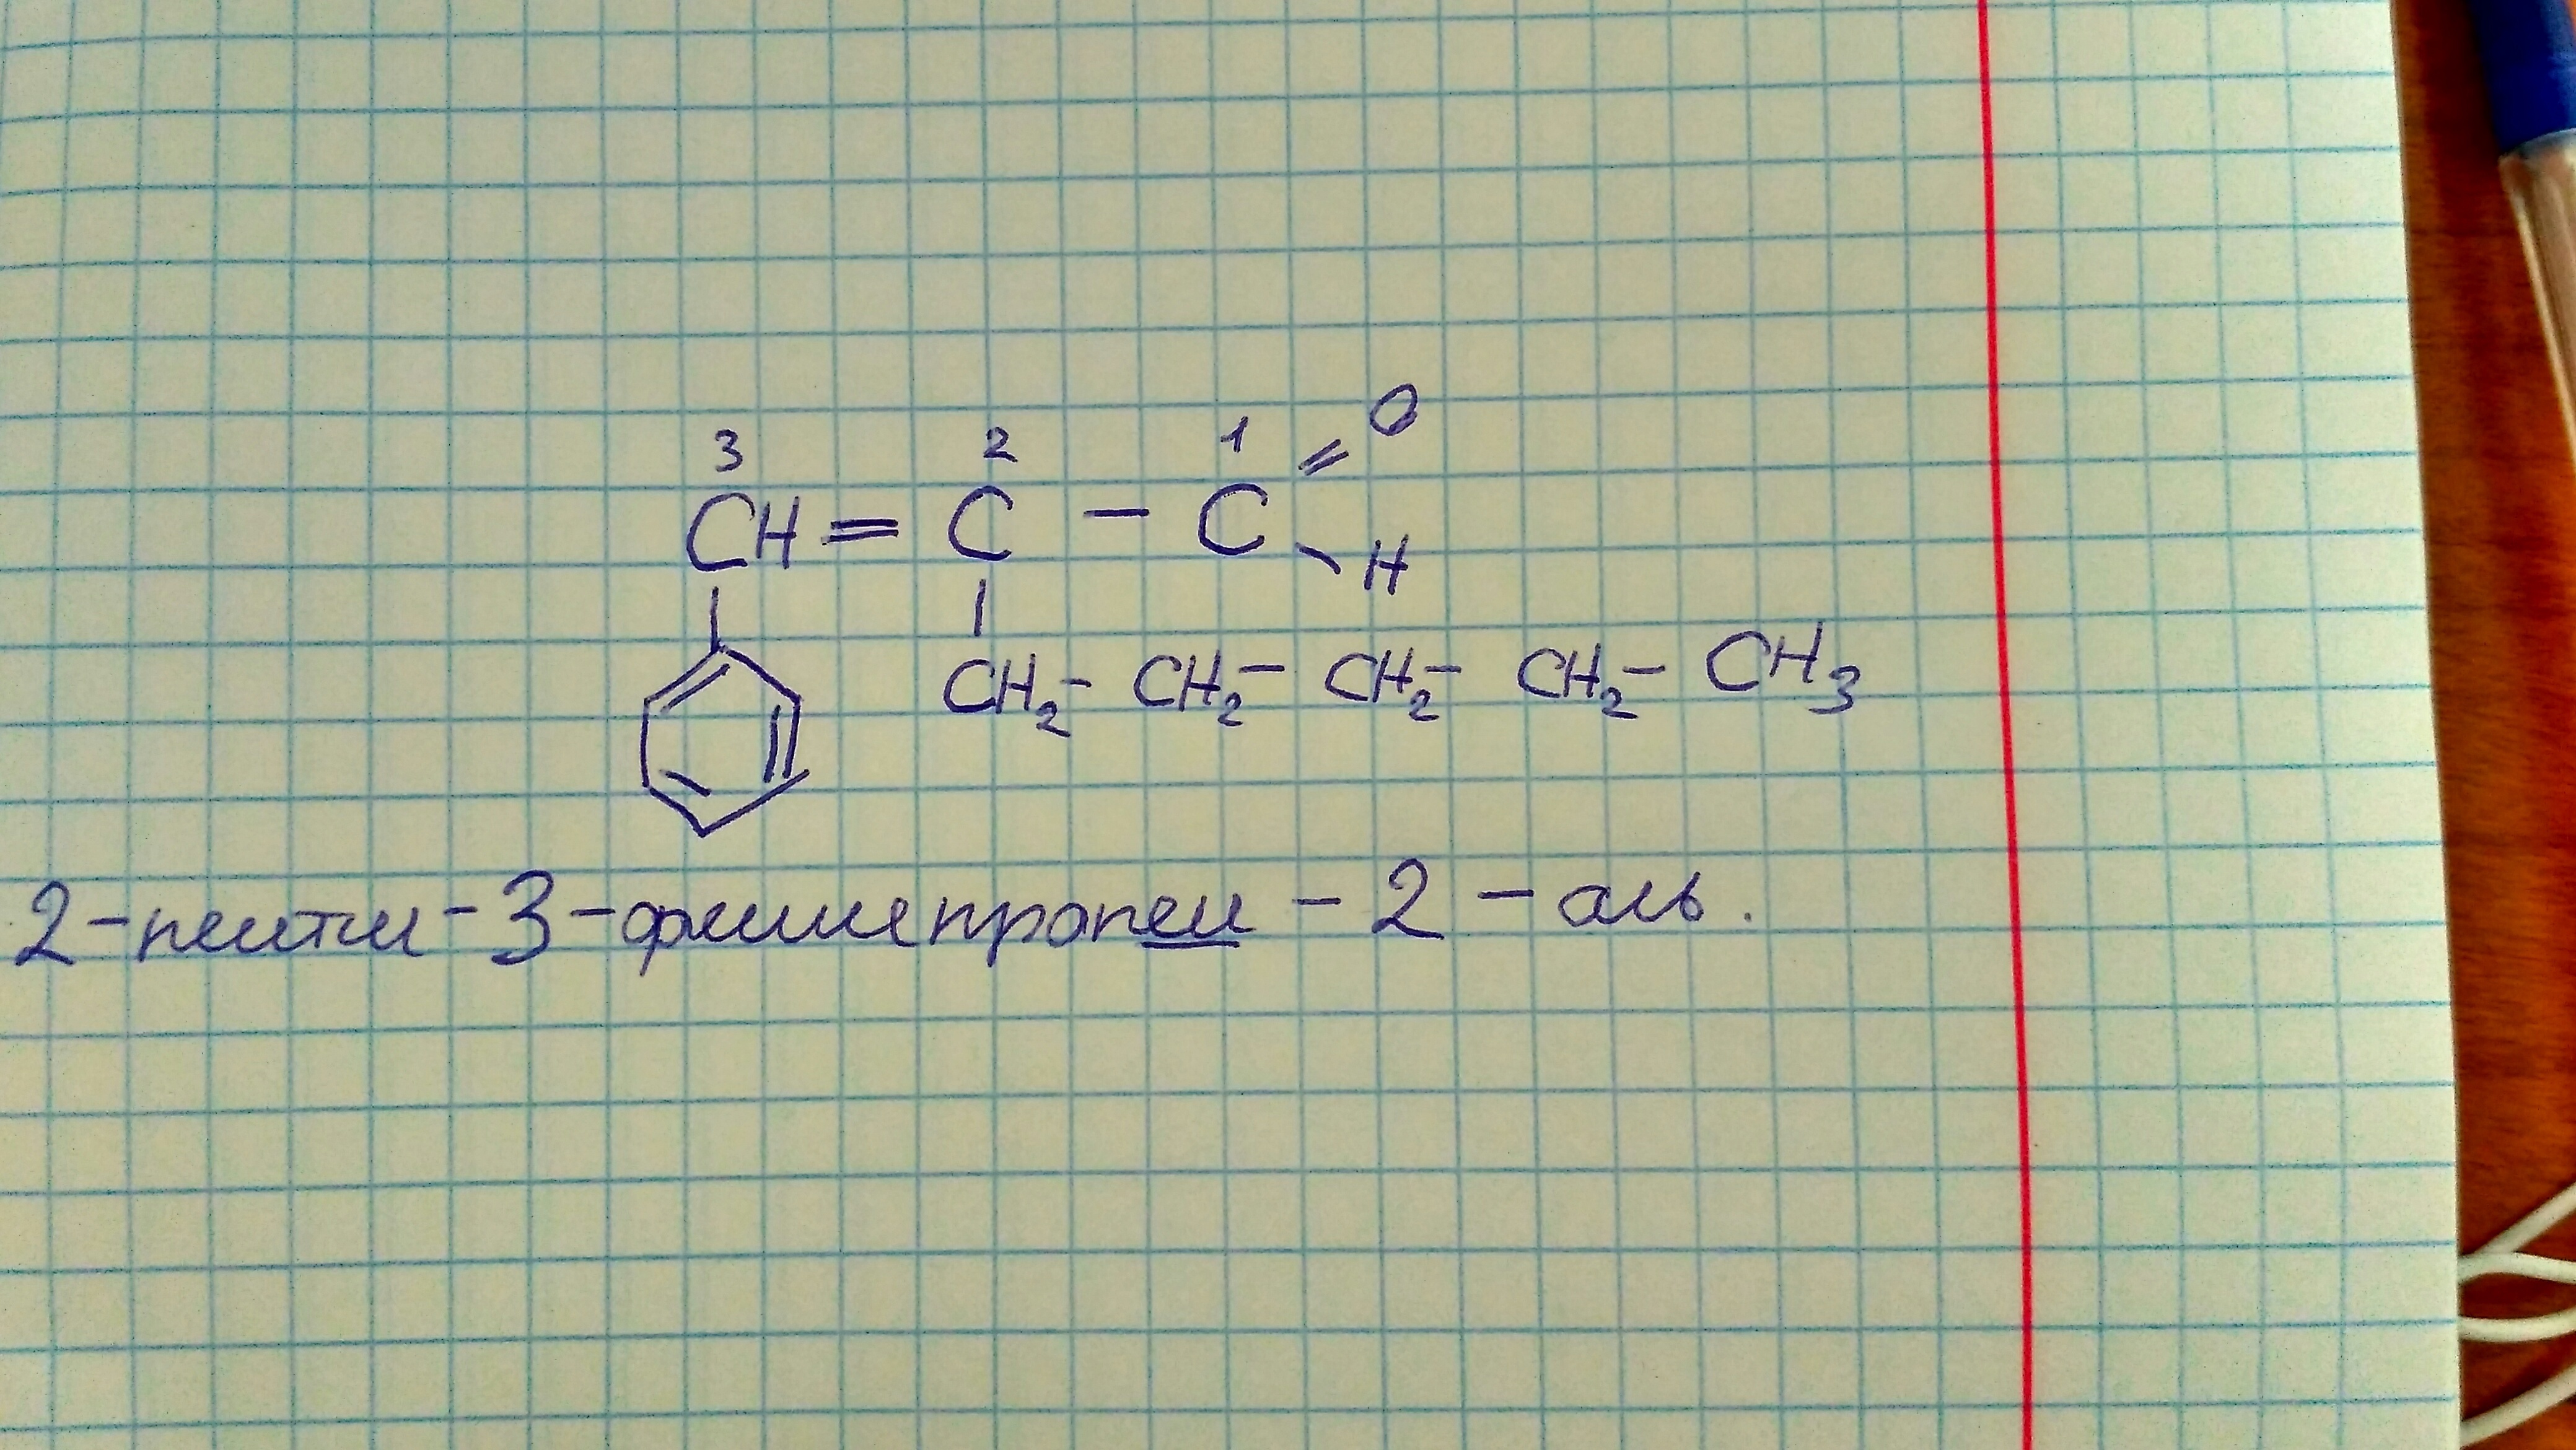 3 2 1 O
CH = C - C H
CH₂ - CH₂ - CH₂ - CH₂ - CH₃
2-пентил-3-фенилпропен - 2 - аль.